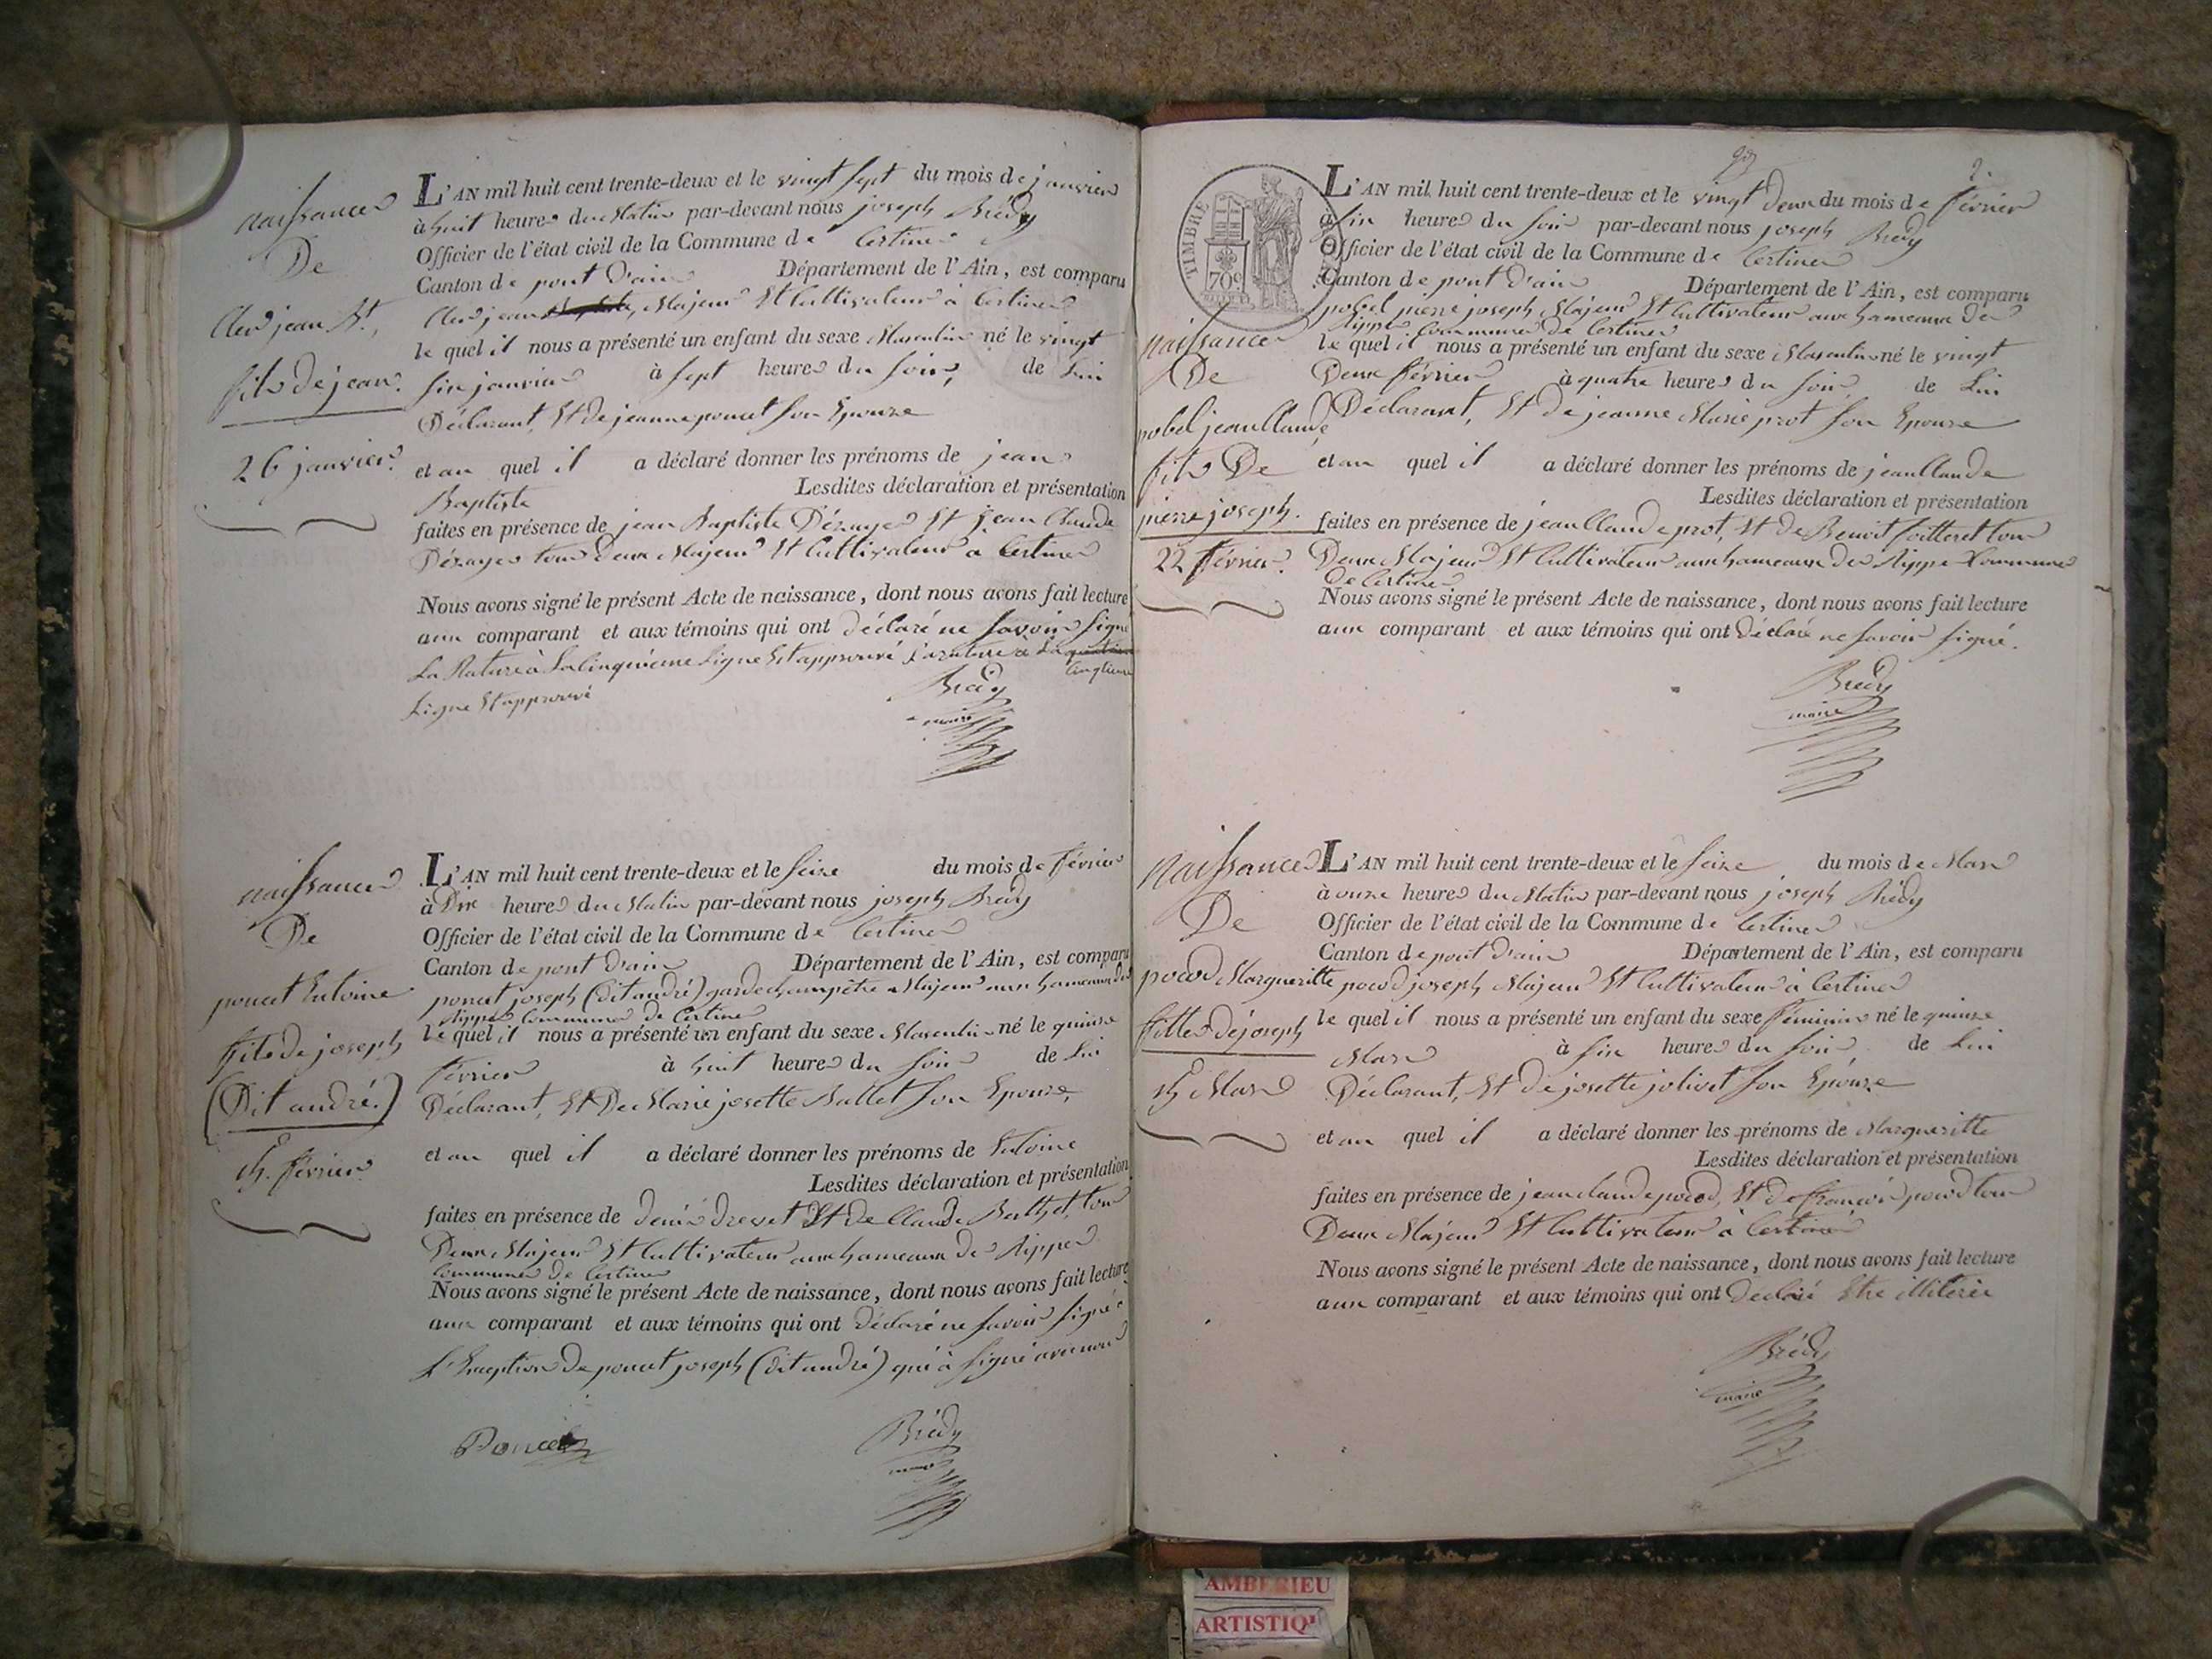 naissance
De
Clerd jean Bte.
fils de jean.
26 janvier.
L'AN mil huit cent trente-deux et le vingt sept du mois de janvier
à huit heures du Matin par-devant nous joseph Brédy
Officier de l'état civil de la Commune de Certines
Canton de pont D'ain Département de l'Ain, est comparu
jean Majeur Et Cultivateur à Certines
le quel il nous a présenté un enfant du sexe Masculin né le vingt
six janvier à sept heures du soir, de Lui
Déclarant, Et de jeanne poncet son Epouze
et au quel il a déclaré donner les prénoms de jean
Baptiste Lesdites déclaration et présentation
faites en présence de jean Baptiste Dézayes Et jean Claude
Dézayes tous Deux Majeurs Et Cultivateurs à Certines
Nous avons signé le présent Acte de naissance, dont nous avons fait lecture
aux comparant et aux témoins qui ont déclaré ne savoir signé
La Rature à La cinquième Ligne Est approuvé
Ligne Et approuvé
Brédy
maire
naissance
De
poncet Entoine
fils de joseph
(Dit andré.)
15. février.
L'AN mil huit cent trente-deux et le seize du mois de février
à Dix heures du Matin par-devant nous joseph Brédy
Officier de l'état civil de la Commune de Certines
Canton de pont D'ain Département de l'Ain, est comparu
poncet joseph (dit andré) garde champêtre Majeur aux hameaux des
Rippes Commune de Certines
le quel il nous a présenté un enfant du sexe Masculin né le quinze
février à huit heures du soir de Lui
Déclarant, Et De Marie josette Ballet son Epouze,
et au quel il a déclaré donner les prénoms de Entoine
Lesdites déclaration et présentation
faites en présence de denis drevet Et de Claude Berthet, tous
Deux Majeurs Et Cultivateurs aux hameaux des Rippes
Commune de Certines
Nous avons signé le présent Acte de naissance, dont nous avons fait lecture
aux comparant et aux témoins qui ont déclaré ne savoir signé à
L'Exeption de poncet joseph (dit andré) qui à signé avec nous
Poncet
Brédy
maire
2.
TIMBRE
70c
naissance
De
nobel jean Claude,
fils De
pierre joseph.
22 février.
L'AN mil huit cent trente-deux et le vingt deux du mois de février
à six heures du soir par-devant nous joseph Brédy
Officier de l'état civil de la Commune de Certines
Canton de pont D'ain Département de l'Ain, est comparu
nobel pierre joseph Majeur Et Cultivateur aux hameaux des
Rippes Commune de Certines
le quel il nous a présenté un enfant du sexe Masculin né le vingt
Deux février à quatre heures du soir, de Lui
Déclarant, Et de jeanne Marie prot son Epouze
et au quel il a déclaré donner les prénoms de jean Claude
Lesdites déclaration et présentation
faites en présence de jean Claude prot, Et de Benoit tous
Deux Majeurs Et Cultivateurs aux hameaux des Rippes Commune
De Certines
Nous avons signé le présent Acte de naissance, dont nous avons fait lecture
aux comparant et aux témoins qui ont Déclaré ne savoir signé.
Brédy
maire
Naissance
De
pocod Margueritte
fille de joseph
15 Mars
L'AN mil huit cent trente-deux et le seize du mois de Mars
à onze heures du Matin par-devant nous joseph Brédy
Officier de l'état civil de la Commune de Certines
Canton de pont D'ain Département de l'Ain, est comparu
pocod joseph Majeur Et Cultivateur à Certines
le quel il nous a présenté un enfant du sexe féminin né le quinze
Mars à six heures du soir, de Lui
Déclarant, Et de josette jolivet son Epouze
et au quel il a déclaré donner les prénoms de Margueritte
Lesdites déclaration et présentation
faites en présence de jean claude pocod, Et de françois pocod tous
Deux Majeurs Et Cultivateurs à Certines
Nous avons signé le présent Acte de naissance, dont nous avons fait lecture
aux comparant et aux témoins qui ont Déclaré Etre illiterée
Brédy
maire
AMBERIEU
ARTISTIQ